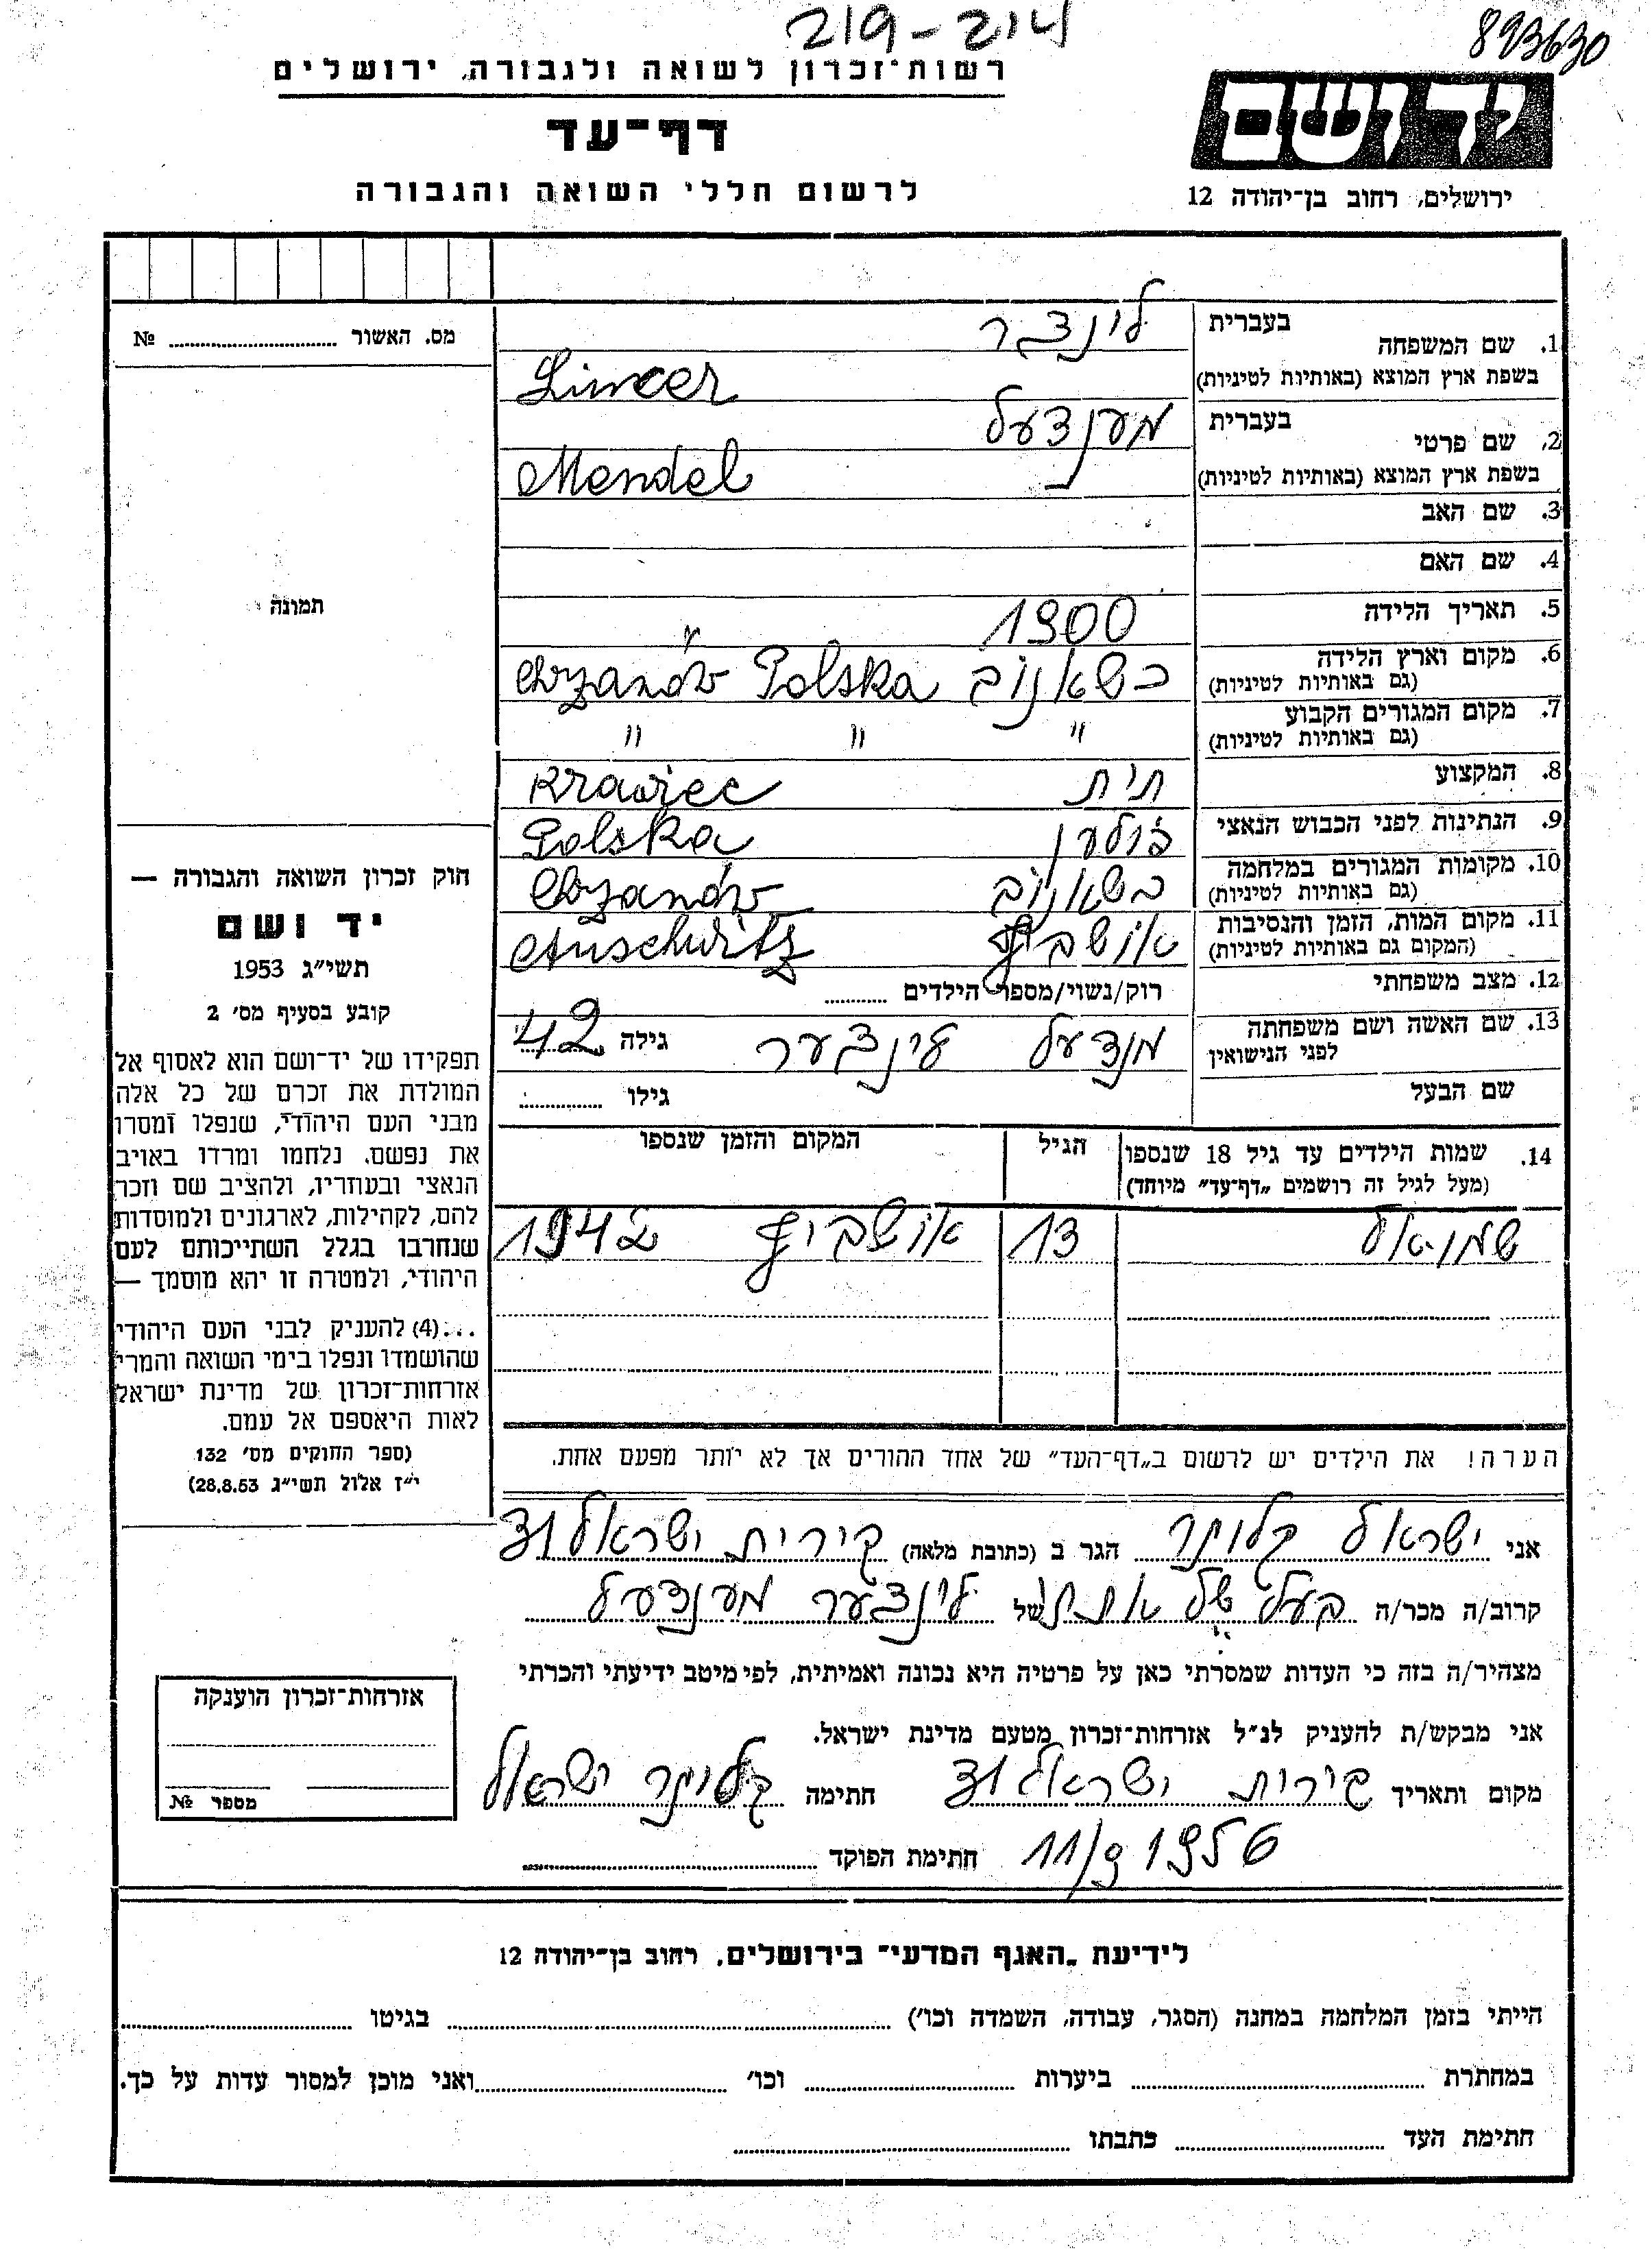 219-214
893630
רשות־זכרון לשואה ולגבורה, ירושלים
יד ושם
דף־עד
לרשום חללי השואה והגבורה
ירושלים, רחוב בן־יהודה 12
מס. האשור № 
1. שם המשפחה בעברית לינצר
בשפת ארץ המוצא (באותיות לטיניות) Lincer
2. שם פרטי בעברית מענדעל
בשפת ארץ המוצא (באותיות לטיניות) Mendel
3. שם האב
4. שם האם
תמונה
5. תאריך הלידה 1900
6. מקום וארץ הלידה (גם באותיות לטיניות) כשאנוב Polska Chrzanów
7. מקום המגורים הקבוע (גם באותיות לטיניות) " " "
8. המקצוע Krawiec
9. הנתינות לפני הכבוש הנאצי פולען Polska
10. מקומות המגורים במלחמה (גם באותיות לטיניות) כשאנוב Chrzanów
11. מקום המות, הזמן והנסיבות (המקום גם באותיות לטיניות) אושביץ Auschwitz
12. מצב משפחתי רוק/נשוי/מספר הילדים
13. שם האשה ושם משפחתה לפני הנישואין מנדעל לינצער גילה 42
שם הבעל גילו
14. שמות הילדים עד גיל 18 שנספו הגיל המקום והזמן שנספו
(מעל לגיל זה רושמים „דף־עד״ מיוחד)
שמואל 13 אושביץ 1942
הערה! את הילדים יש לרשום ב„דף־העד״ של אחד ההורים אך לא יותר מפעם אחת.
חוק זכרון השואה והגבורה —
יד ושם
תשי״ג 1953
קובע בסעיף מס׳ 2
תפקידו של יד־ושם הוא לאסוף אל
המולדת את זכרם של כל אלה
מבני העם היהודי, שנפלו ומסרו
את נפשם, נלחמו ומרדו באויב
הנאצי ובעוזריו, ולהציב שם וזכר
להם, לקהילות, לארגונים ולמוסדות
שנחרבו בגלל השתייכותם לעם
היהודי, ולמטרה זו יהא מוסמך —
...(4) להעניק לבני העם היהודי
שהושמדו ונפלו בימי השואה והמרי
אזרחות־זכרון של מדינת ישראל
לאות היאספם אל עמם.
(ספר החוקים מס׳ 132
י״ז אלול תשי״ג 28.8.53)
אני ישראל קלוגר הגר ב (כתובת מלאה) קירית ישראל
קרוב/ה מכר/ה בעל של של לינצער מענדעל
מצהיר/ה בזה כי העדות שמסרתי כאן על פרטיה היא נכונה ואמיתית, לפי מיטב ידיעתי והכרתי
אני מבקש/ת להעניק לנ״ל אזרחות־זכרון מטעם מדינת ישראל.
מקום ותאריך קירית ישראל חתימה קלוגר ישראל
11/9 1956 חתימת הפוקד
אזרחות־זכרון הוענקה
מספר №
לידיעת „האגף המדעי״ בירושלים, רחוב בן־יהודה 12
הייתי בזמן המלחמה במחנה (הסגר, עבודה, השמדה וכו׳) בגיטו
במחתרת ביערות וכו׳ ואני מוכן למסור עדות על כך.
חתימת העד כתבתו